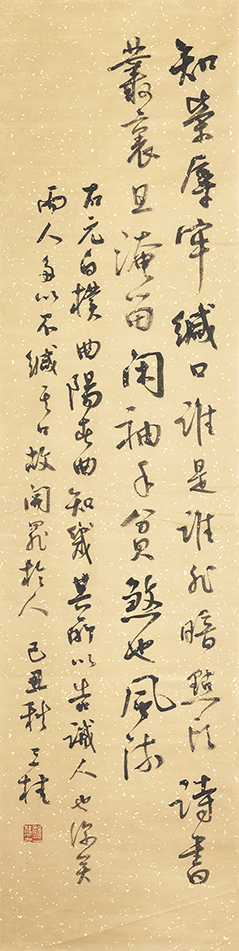 知榮辱牢緘口誰是誰非暗點頭詩書
叢裏且淹留閑袖手貧煞也風流
右元白樸曲陽春曲知幾其所以告誡人也深矣
而人多以不緘其口故開罪於人 己丑秋